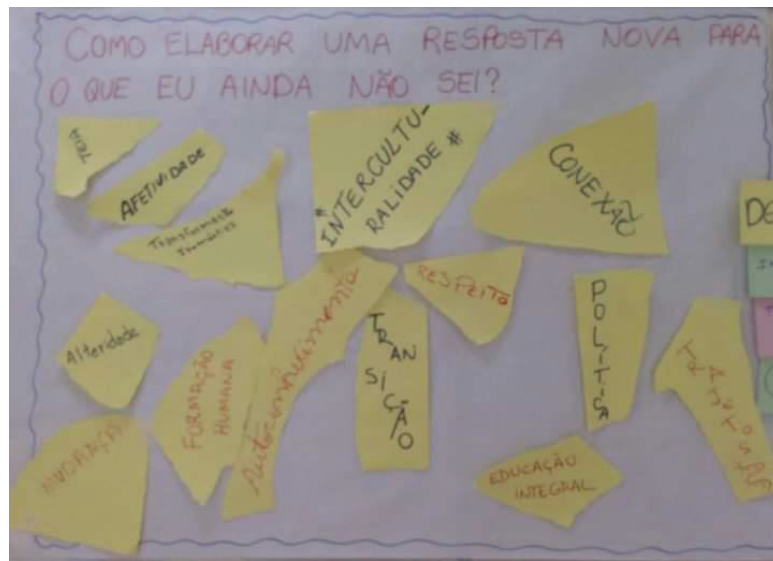 COMO ELABORAR UMA RESPOSTA NOVA PARA
O QUE EU AINDA NÃO SEI?
TEIA
AFETIVIDADE
#INTERCULTU-
RALIDADE #
CONEXÃO
RESPEITO
Alteridade
FORMAÇÃO
HUMANA
Autoconhecimento
TRAN
SI
ÇÃO
POLÍTICA
MUDANÇA
EDUCAÇÃO
INTEGRAL